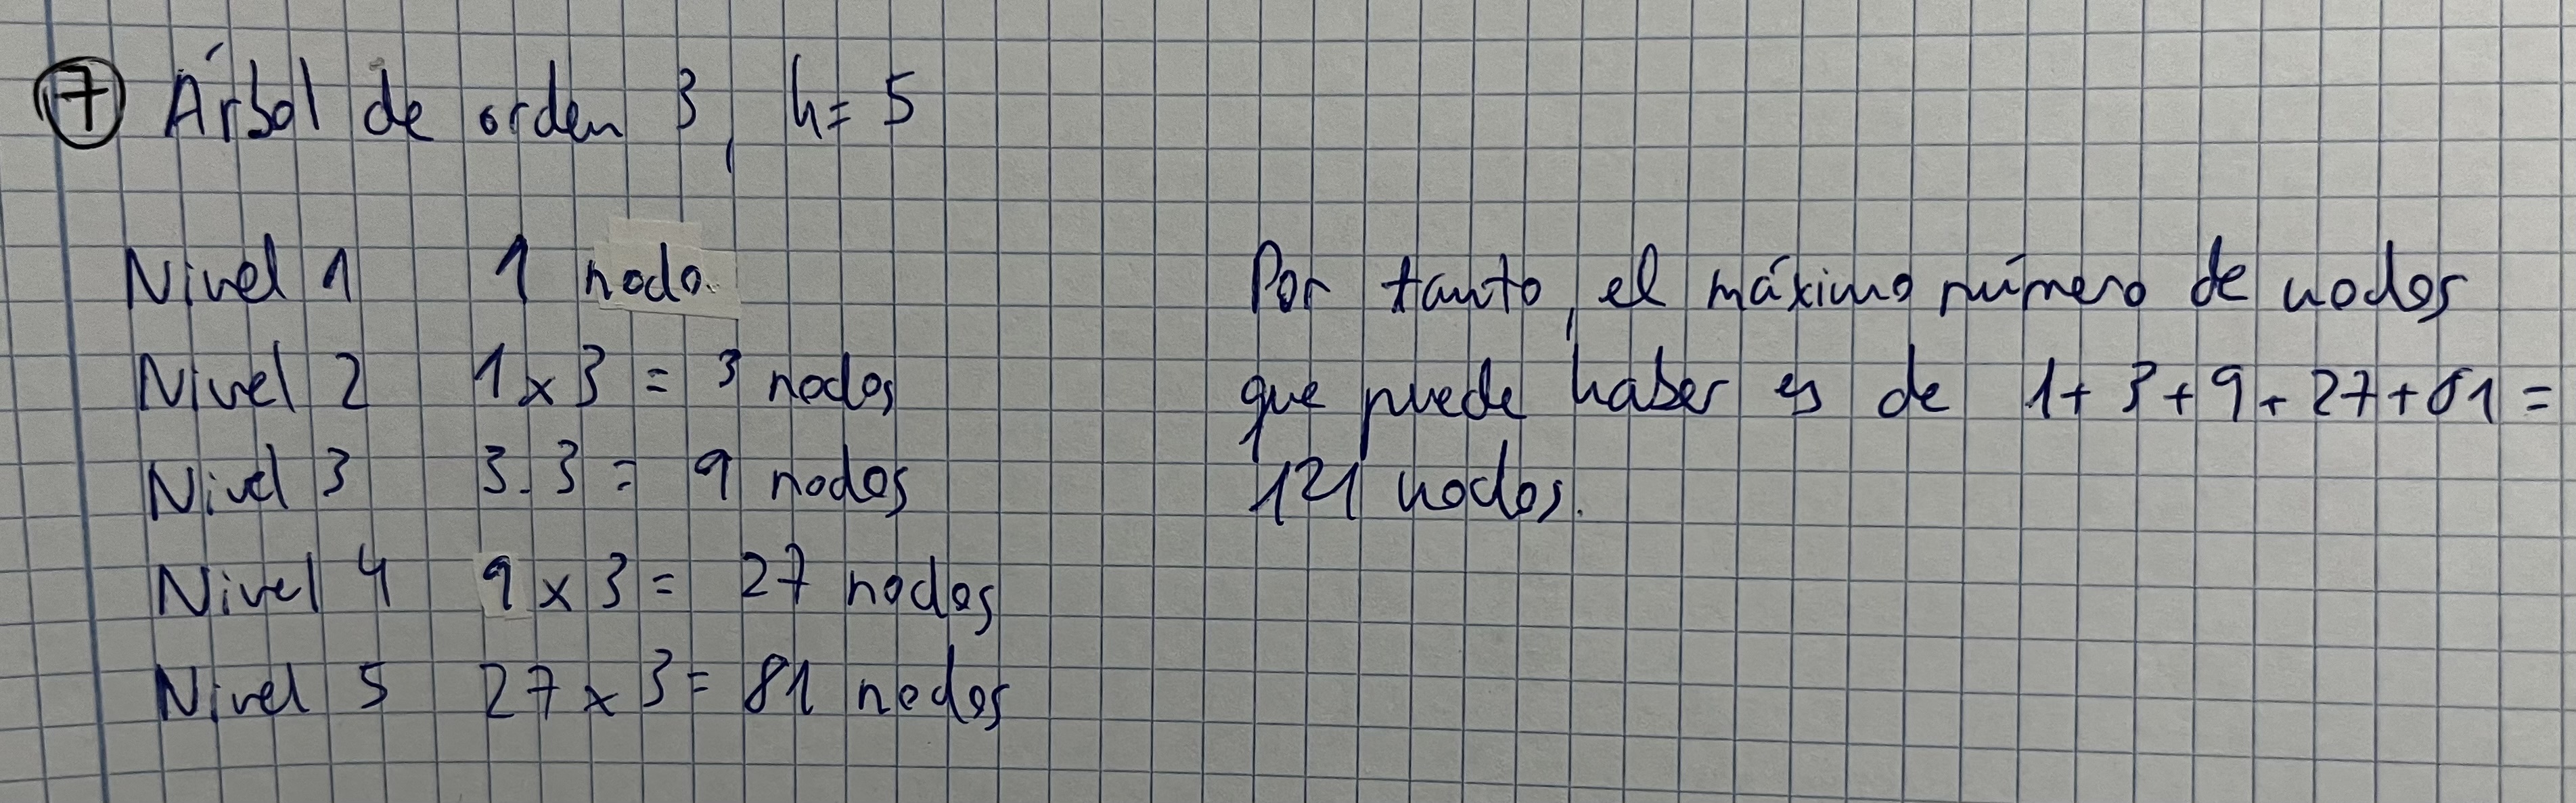 7 Árbol de orden 3, h= 5
Nivel 1 1 nodo.
Nivel 2 1 x 3 = 3 nodos
Nivel 3 3.3 = 9 nodos
Nivel 4 9 x 3 = 27 nodos
Nivel 5 27 x 3 = 81 nodos
Por tanto, el máximo número de nodos
que puede haber es de 1+ 3 + 9 + 27 + 81 =
121 nodos.